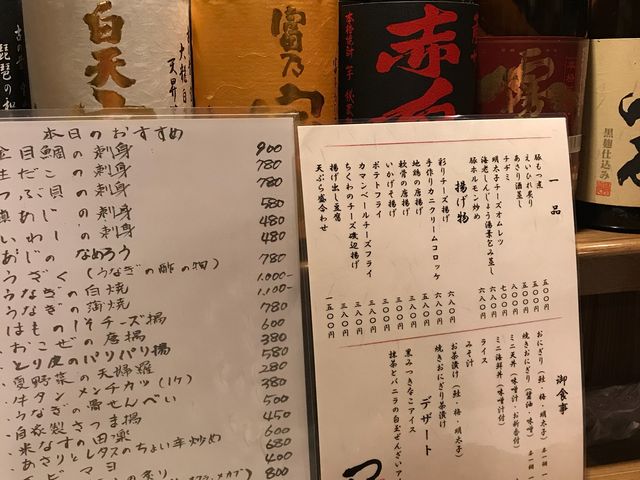 白天
富乃
本格焼酎
赤
黒麹仕込み
本日のおすすめ
金目鯛の刺身 900
生だこの刺身 780
つぶ貝の刺身 780
あじの刺身 580
いわしの刺身 480
480
あじのなめろう 780
うざく(うなぎの酢の物) 1,000-
うなぎの白焼 1,100-
うなぎの蒲焼 780
はものしそチーズ揚 600
おこぜの唐揚 380
とり皮のパリパリ揚 580
夏野菜の天婦羅 280
牛タンメンチカツ(1ケ) 380
うなぎの骨せんべい 500
自家製さつま揚 450
米なすの田楽 600
あさりとレタスのちょい辛炒め 680
マヨ 400
800
一品
豚もつ煮 五〇〇円
えいひれ炙り 五〇〇円
あさり酒蒸し 五〇〇円
チヂミ 八〇〇円
明太子チーズオムレツ 七〇〇円
海老しんじょう湯葉包み蒸し 六八〇円
豚ホルモン炒め 六八〇円
揚げ物
彩りチーズ揚げ 六八〇円
手作りカニクリームコロッケ 六八〇円
地鶏の唐揚げ 五八〇円
軟骨の唐揚げ 三八〇円
いかげそ揚げ 三八〇円
ポテトフライ 三八〇円
カマンベールチーズフライ
ちくわのチーズ磯辺揚げ 三八〇円
揚げ出し豆腐 三八〇円
天ぷら盛合わせ 一五〇〇円
御食事
おにぎり(鮭・梅・明太子)
焼きおにぎり(醤油・味噌)
ミニ天丼(味噌汁・お新香付)
ミニ海鮮丼(味噌汁付)
ライス
みそ汁
お茶漬け(鮭・梅・明太子)
焼きおにぎり茶漬け
デザート
黒みつきなこアイス
抹茶とバニラの白玉ぜんざいア